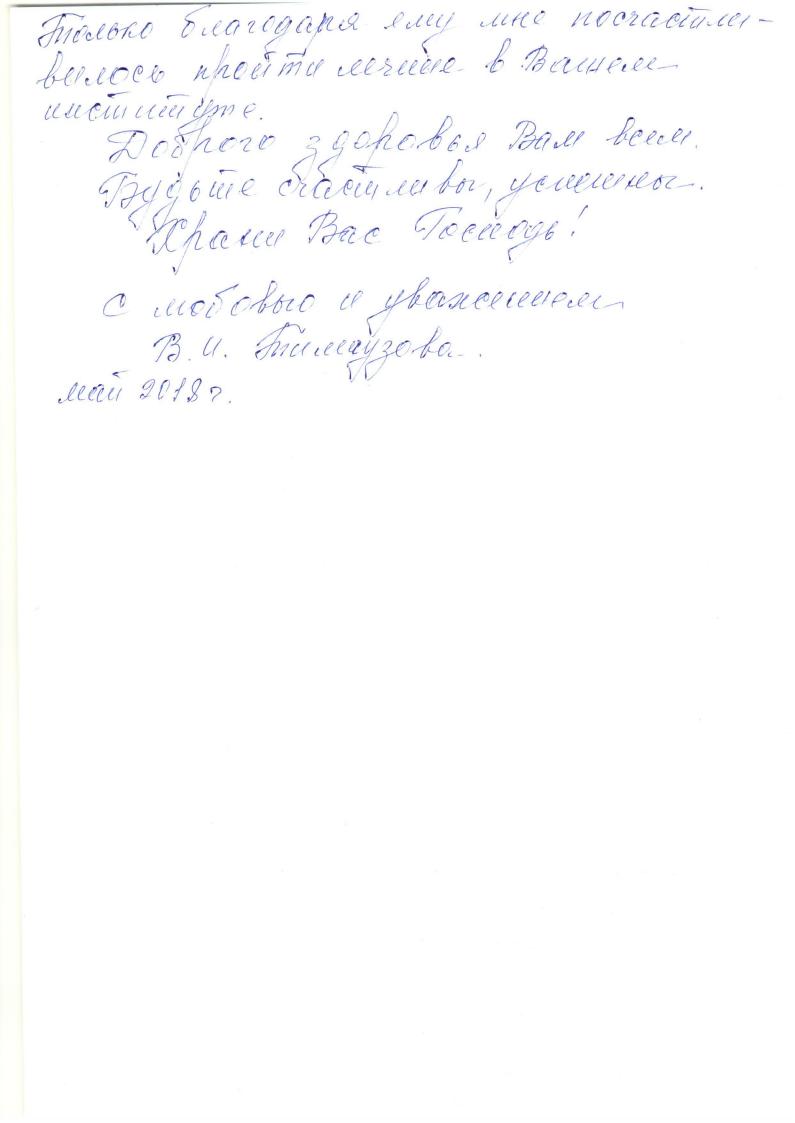 Только благодаря ему мне посчастли-
вилось пройти лечение в Вашем
институте.
Доброго здоровья Вам всем.
Будьте счастливы, успешны.
Храни Вас Господь!
С любовью и уважением
В. И.
май 2018 г.